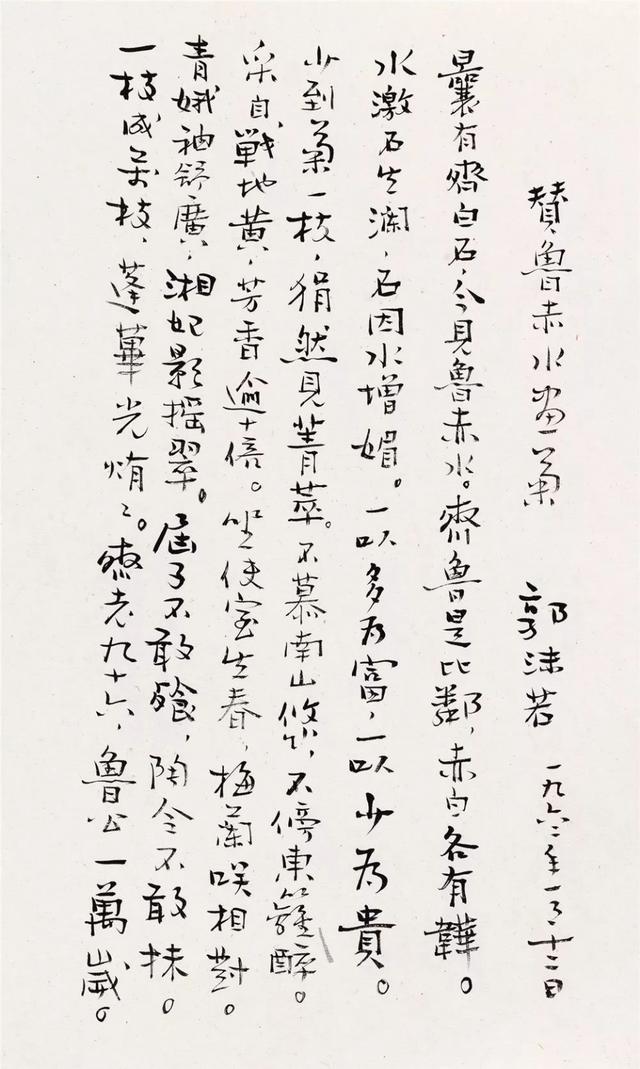 赞鲁赤水画菊 郭沫若 一九六二年一月十二日
曩有齊白石，今見魯赤水。齊魯是比鄰，赤白各有韡。
水激石生澜，石因水增媚。一以多为富，一以少为貴。
少到菊一枝，狷然見菁萃。不慕南山悠，不傍東籬醉。
采自戰地黄，芳香逾十倍。坐使室生春，梅蘭咲相對。
青娥袖舒廣，湘妃影摇翠。屈子不敢餐，陶令不敢抹。
一枝成萬枝，蓬蓽光焴〻。齊老九十六，魯公一萬歲。